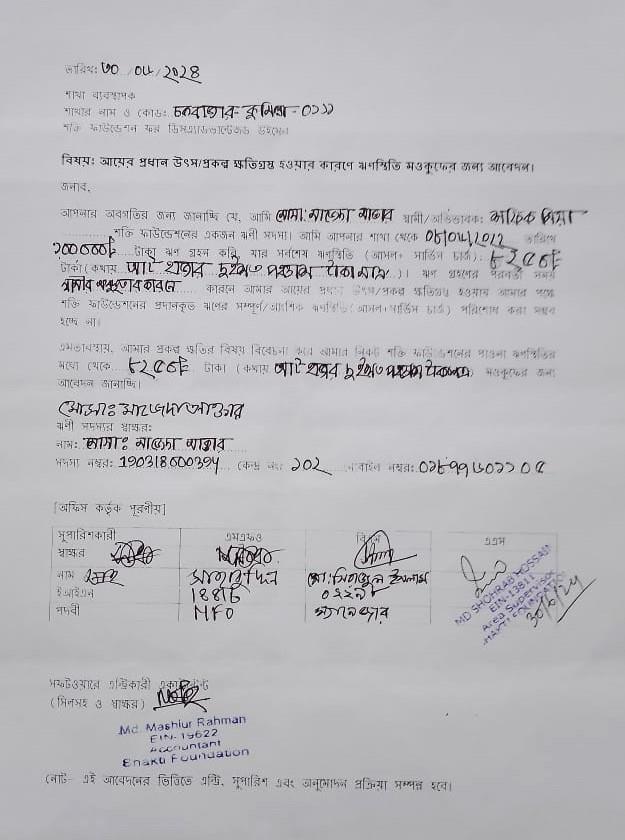 তারিখ: ৩০/০৬/২০২৪
শাখা ব্যবস্থাপক
শাখার নাম ও কোড: চকবাজার- কুমিল্লা- ০১১
শক্তি ফাউন্ডেশন ফর ডিসএ্যাডভান্টেজড উইমেন
বিষয়: আয়ের প্রধান উৎস/প্রকল্প ক্ষতিগ্রস্থ হওয়ার কারণে ঋণস্থিতি মওকুফের জন্য আবেদন।
জনাব,
আপনার অবগতির জন্য জানাচ্ছি যে, আমি মোসা: মাজেদা আক্তার স্বামী/অভিভাবক: মিয়া
শক্তি ফাউন্ডেশনের একজন ঋণী সদস্য। আমি আপনার শাখা থেকে তারিখে
টাকা ঋণ গ্রহন করি, যার সর্বশেষ ঋণস্থিতি (আসল+ সার্ভিস চার্জ): ৮২৫০/-
টাকা (কথায় আট হাজার দুইশত পঞ্চাশ টাকা মাত্র)। ঋণ গ্রহণের পরবর্তী সময়
স্বামীর অসুস্থতার কারনে কারনে আমার আয়ের প্রধান উৎস/প্রকল্প ক্ষতিগ্রস্থ হওয়ায় আমার পক্ষে
শক্তি ফাউন্ডেশনের প্রদানকৃত ঋণের সম্পূর্ণ/আংশিক ঋণস্থিতি (আসল+সার্ভিস চার্জ) পরিশোধ করা সম্ভব
হচ্ছে না।
এমতাবস্থায়, আমার প্রকল্প ক্ষতির বিষয় বিবেচনা করে আমার নিকট শক্তি ফাউন্ডেশনের পাওনা ঋণস্থিতির
মধ্যে থেকে ৮২৫০/- টাকা (কথায় আট হাজার দুইশত পঞ্চাশ টাকা মাত্র) মওকুফের জন্য
আবেদন জানাচ্ছি।
মোসাঃ মাজেদা আক্তার
ঋণী সদস্যর স্বাক্ষর:
নাম: মোসা: মাজেদা আক্তার
সদস্য নম্বর: 190318600394 কেন্দ্র নং: ১০২ মোবাইল নম্বর:
[অফিস কর্তৃক পূরণীয়]
সুপারিশকারী এমএফও বিএম এএম
স্বাক্ষর
নাম মোঃ সিরাজুল ইসলাম
ইআইএন
পদবী MFO ম্যানেজার
MD SHOHRAB HOSSAIN
EIN-13811
Area Supervisor
SHAKTI FOUNDATION
30/6/24
সফটওয়ারে এন্ট্রিকারী একাউন্টেন্ট
(সিলসহ ও স্বাক্ষর)
Md. Mashiur Rahman
EIN-19622
Accountant
Shakti Foundation
নোট- এই আবেদনের ভিত্তিতে এন্ট্রি, সুপারিশ এবং অনুমোদন প্রক্রিয়া সম্পন্ন হবে।